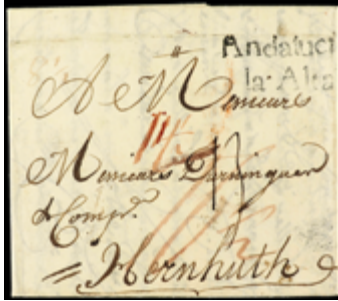 Andaluci
la Alta
A Messieurs
Messieurs Durninguer
& Comp.e
Hernhuth